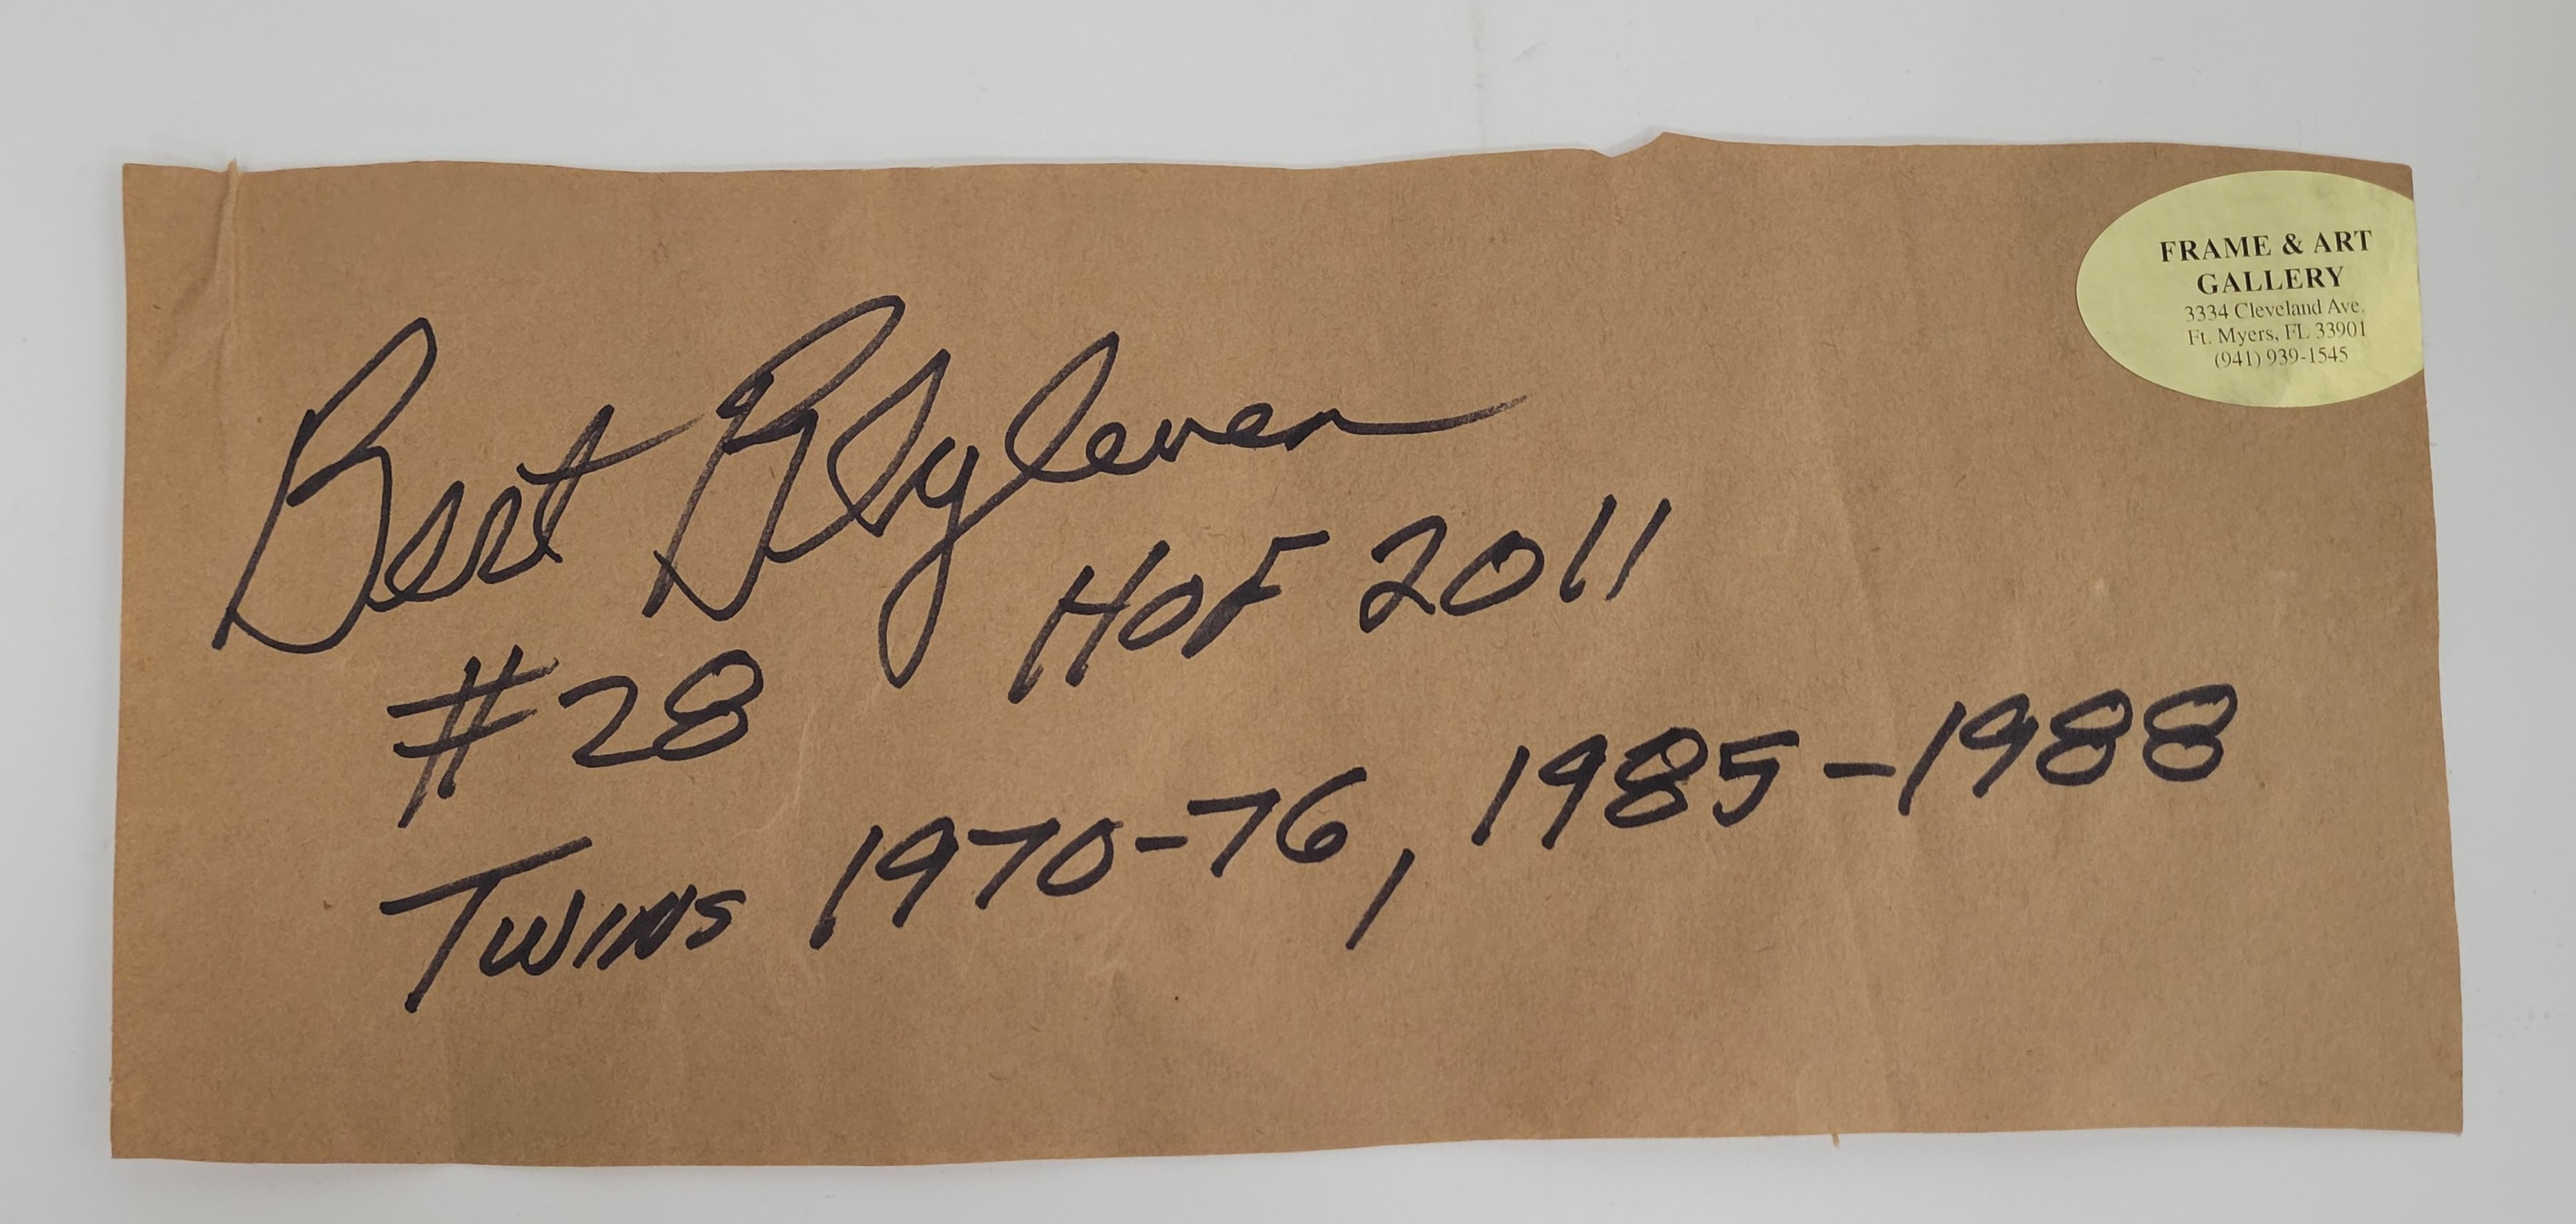 Bert Blyleven
HOF 2011
#28
Twins 1970-76, 1985-1988
FRAME & ART
GALLERY
3334 Cleveland Ave.
Ft. Myers, FL 33901
(941) 939-1545